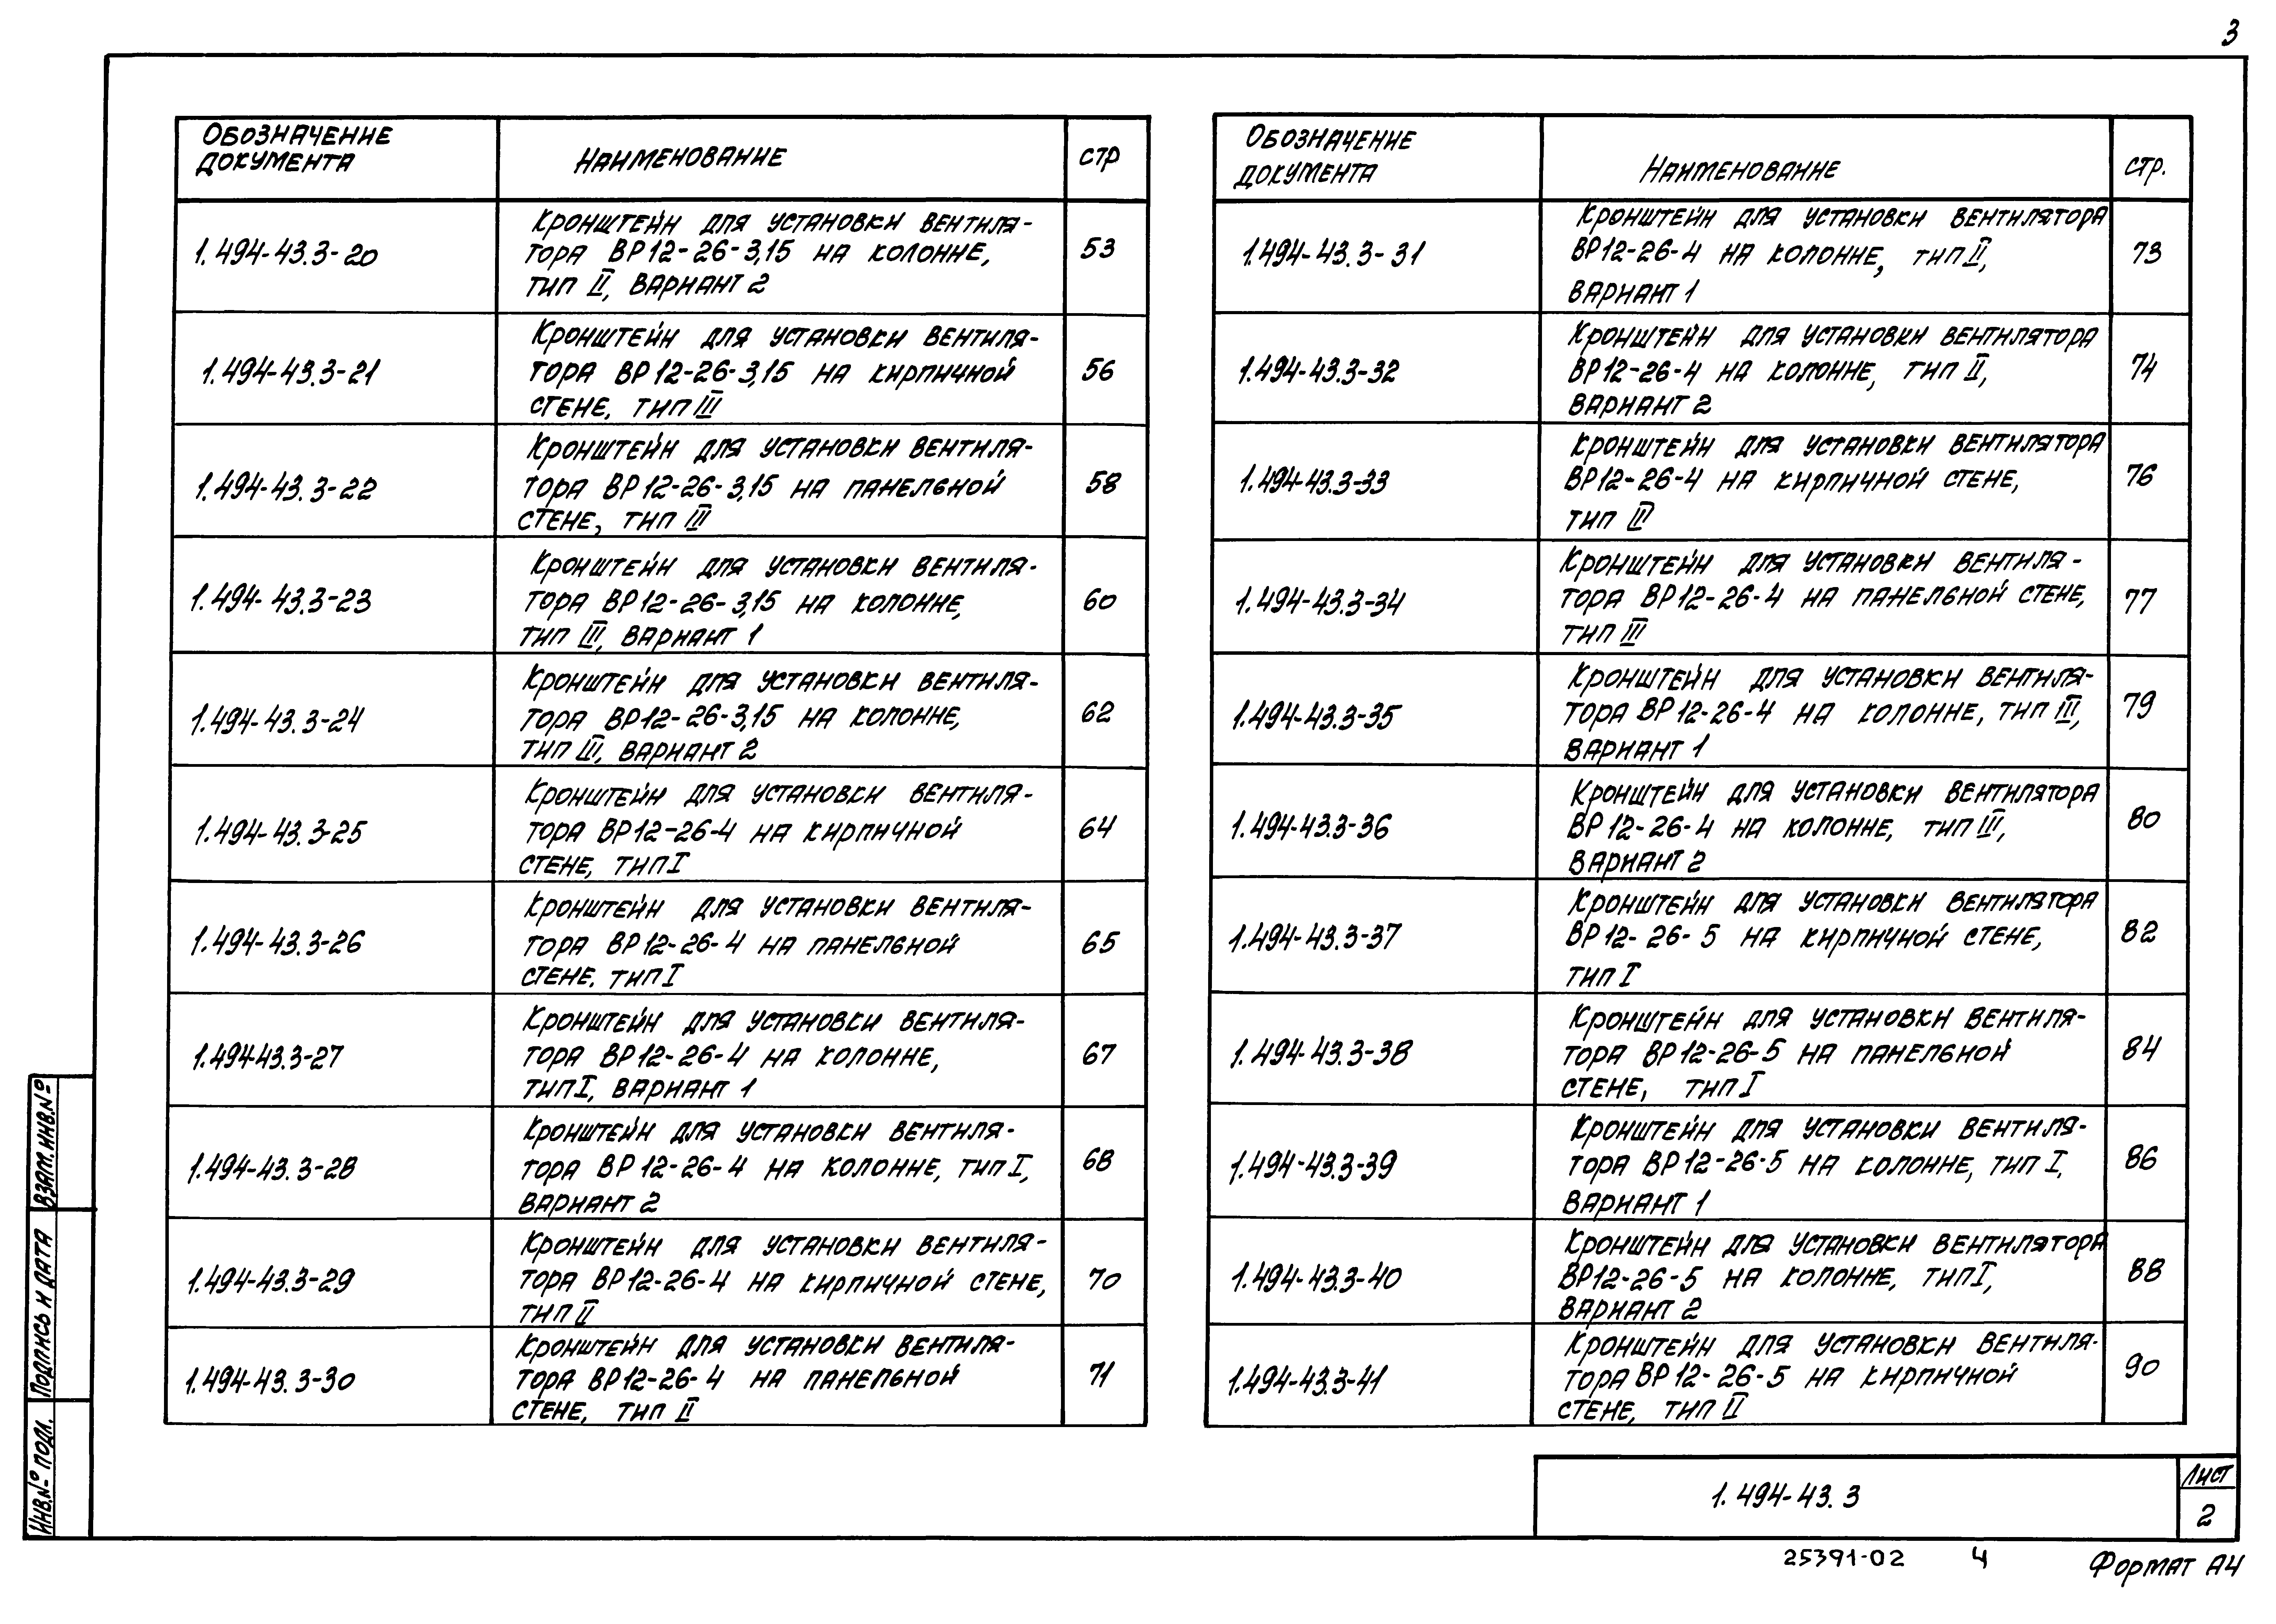 3
ОБОЗНАЧЕНИЕ
ДОКУМЕНТА
НАИМЕНОВАНИЕ
СТР
1.494-43.3-20
КРОНШТЕЙН ДЛЯ УСТАНОВКИ ВЕНТИЛЯ-
ТОРА ВР12-26-3,15 НА КОЛОННЕ,
ТИП II, ВАРИАНТ 2
53
1.494-43.3-21
КРОНШТЕЙН ДЛЯ УСТАНОВКИ ВЕНТИЛЯ-
ТОРА ВР12-26-3,15 НА КИРПИЧНОЙ
СТЕНЕ, ТИП III
56
1.494-43.3-22
КРОНШТЕЙН ДЛЯ УСТАНОВКИ ВЕНТИЛЯ-
ТОРА ВР12-26-3,15 НА ПАНЕЛЬНОЙ
СТЕНЕ, ТИП III
58
1.494-43.3-23
КРОНШТЕЙН ДЛЯ УСТАНОВКИ ВЕНТИЛЯ-
ТОРА ВР12-26-3,15 НА КОЛОННЕ,
ТИП III, ВАРИАНТ 1
60
1.494-43.3-24
КРОНШТЕЙН ДЛЯ УСТАНОВКИ ВЕНТИЛЯ-
ТОРА ВР12-26-3,15 НА КОЛОННЕ,
ТИП III, ВАРИАНТ 2
62
1.494-43.3-25
КРОНШТЕЙН ДЛЯ УСТАНОВКИ ВЕНТИЛЯ-
ТОРА ВР12-26-4 НА КИРПИЧНОЙ
СТЕНЕ, ТИП I
64
1.494-43.3-26
КРОНШТЕЙН ДЛЯ УСТАНОВКИ ВЕНТИЛЯ-
ТОРА ВР12-26-4 НА ПАНЕЛЬНОЙ
СТЕНЕ, ТИП I
65
1.494-43.3-27
КРОНШТЕЙН ДЛЯ УСТАНОВКИ ВЕНТИЛЯ-
ТОРА ВР12-26-4 НА КОЛОННЕ,
ТИП I, ВАРИАНТ 1
67
1.494-43.3-28
КРОНШТЕЙН ДЛЯ УСТАНОВКИ ВЕНТИЛЯ-
ТОРА ВР12-26-4 НА КОЛОННЕ, ТИП I,
ВАРИАНТ 2
68
1.494-43.3-29
КРОНШТЕЙН ДЛЯ УСТАНОВКИ ВЕНТИЛЯ-
ТОРА ВР12-26-4 НА КИРПИЧНОЙ СТЕНЕ,
ТИП II
70
1.494-43.3-30
КРОНШТЕЙН ДЛЯ УСТАНОВКИ ВЕНТИЛЯ-
ТОРА ВР12-26-4 НА ПАНЕЛЬНОЙ
СТЕНЕ, ТИП II
71
ОБОЗНАЧЕНИЕ
ДОКУМЕНТА
НАИМЕНОВАНИЕ
СТР.
1.494-43.3-31
КРОНШТЕЙН ДЛЯ УСТАНОВКИ ВЕНТИЛЯТОРА
ВР12-26-4 НА КОЛОННЕ, ТИП II,
ВАРИАНТ 1
73
1.494-43.3-32
КРОНШТЕЙН ДЛЯ УСТАНОВКИ ВЕНТИЛЯТОРА
ВР12-26-4 НА КОЛОННЕ, ТИП II,
ВАРИАНТ 2
74
1.494-43.3-33
КРОНШТЕЙН ДЛЯ УСТАНОВКИ ВЕНТИЛЯТОРА
ВР12-26-4 НА КИРПИЧНОЙ СТЕНЕ,
ТИП III
76
1.494-43.3-34
КРОНШТЕЙН ДЛЯ УСТАНОВКИ ВЕНТИЛЯ-
ТОРА ВР12-26-4 НА ПАНЕЛЬНОЙ СТЕНЕ,
ТИП III
77
1.494-43.3-35
КРОНШТЕЙН ДЛЯ УСТАНОВКИ ВЕНТИЛЯ-
ТОРА ВР12-26-4 НА КОЛОННЕ, ТИП III,
ВАРИАНТ 1
79
1.494-43.3-36
КРОНШТЕЙН ДЛЯ УСТАНОВКИ ВЕНТИЛЯТОРА
ВР12-26-4 НА КОЛОННЕ, ТИП III,
ВАРИАНТ 2
80
1.494-43.3-37
КРОНШТЕЙН ДЛЯ УСТАНОВКИ ВЕНТИЛЯТОРА
ВР12-26-5 НА КИРПИЧНОЙ СТЕНЕ,
ТИП I
82
1.494-43.3-38
КРОНШТЕЙН ДЛЯ УСТАНОВКИ ВЕНТИЛЯ-
ТОРА ВР12-26-5 НА ПАНЕЛЬНОЙ
СТЕНЕ, ТИП I
84
1.494-43.3-39
КРОНШТЕЙН ДЛЯ УСТАНОВКИ ВЕНТИЛЯ-
ТОРА ВР12-26-5 НА КОЛОННЕ, ТИП I,
ВАРИАНТ 1
86
1.494-43.3-40
КРОНШТЕЙН ДЛЯ УСТАНОВКИ ВЕНТИЛЯТОРА
ВР12-26-5 НА КОЛОННЕ, ТИП I,
ВАРИАНТ 2
88
1.494-43.3-41
КРОНШТЕЙН ДЛЯ УСТАНОВКИ ВЕНТИЛЯ-
ТОРА ВР12-26-5 НА КИРПИЧНОЙ
СТЕНЕ, ТИП II
90
ВЗАМ.ИНВ.№
ПОДПИСЬ И ДАТА
ИНВ.№ ПОДЛ.
1.494-43.3
ЛИСТ
2
25391-02 4
ФОРМАТ А4